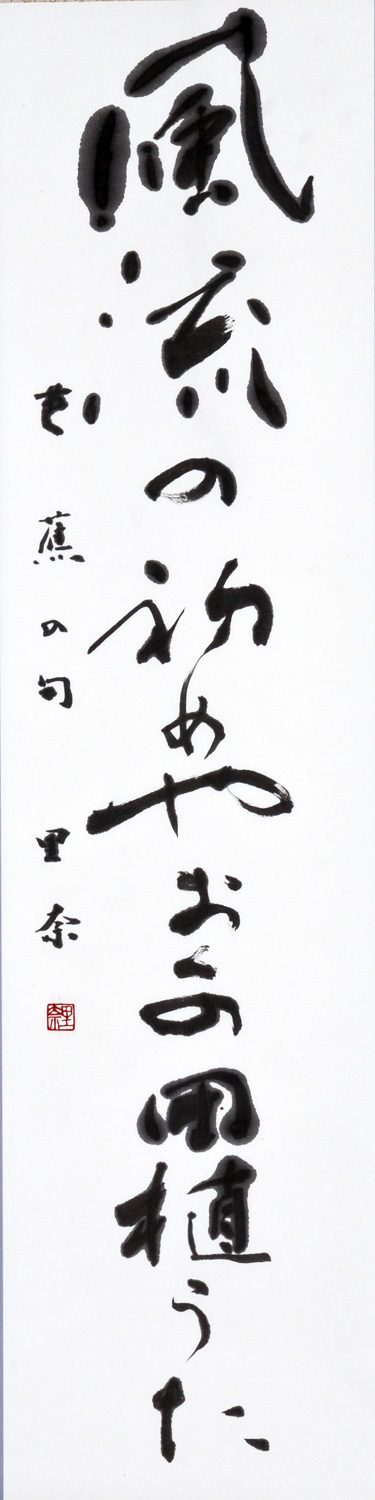 風流の初めやおくの田植うた
芭蕉の句 里奈
里奈